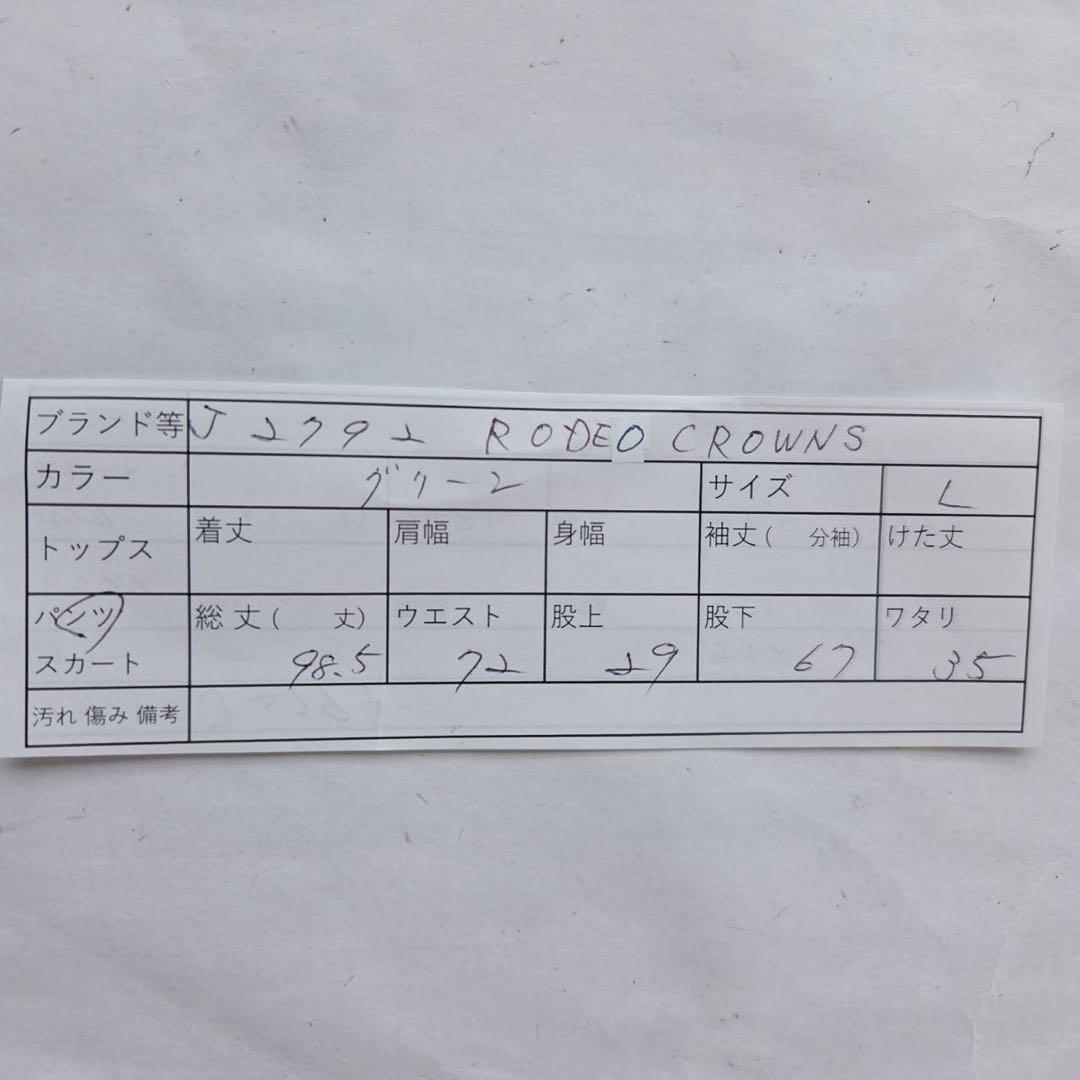 ブランド等 J2792 RODEO CROWNS
カラー グリーン サイズ L
トップス 着丈 肩幅 身幅 袖丈( 分袖) けた丈
パンツ 総丈( 丈) ウエスト 股上 股下 ワタリ
スカート 98.5 72 29 67 35
汚れ 傷み 備考